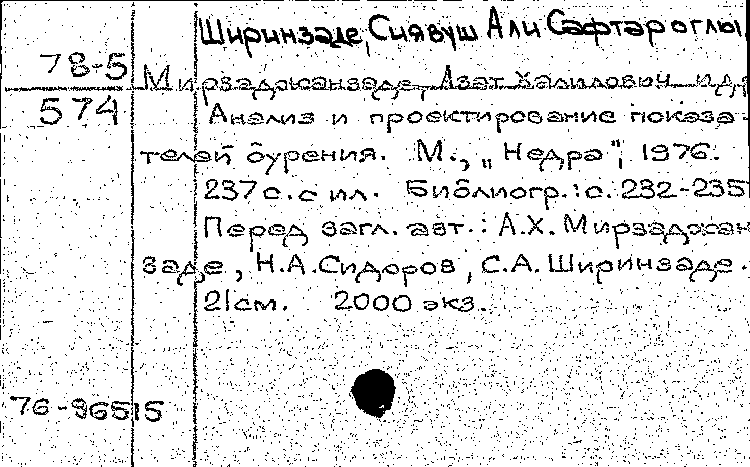 Ширинзаде, Сиявуш Али Сафтар оглы
78-5
574
Мирзаджанзаде, Азат Халилович и др
Анализ и проектирование показа-
телей бурения. М., „Недра", 1976.
237 с. с ил. Библиогр.: с. 232-235
Перед загл. авт.: А.Х. Мирзаджан
заде, Н.А. Сидоров, С.А. Ширинзаде.
21см. 2000 экз.
76-96515